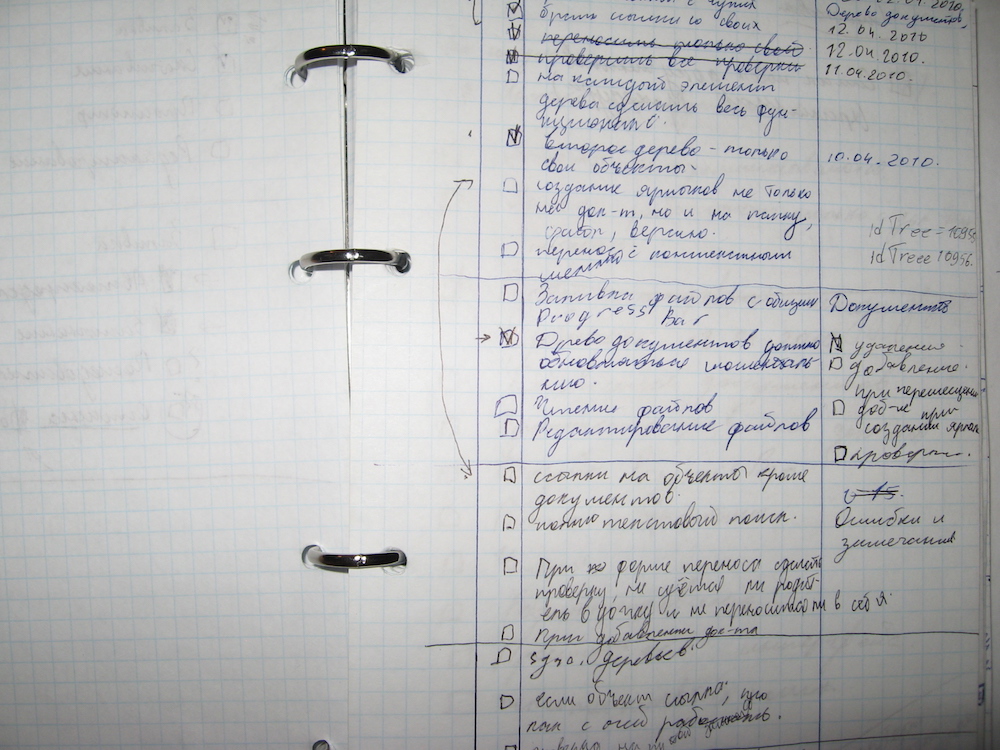 брать ссылки со своих
Дерево документов,
12.04.2010
переносить только свой
12.04.2010.
проверить все проверки
11.04.2010.
на каждый элемент
дерева сделать весь фун-
кционал
второе дерево - только
свои объекты.
10.04.2010.
создание ярлыков не только
на док-т, но и на папку,
файл, версию.
idTree = 1095
перенос с контекстным
idTree 10956.
меню
Заливка файлов с общим
Progress Bar
Документов
Древо документов должно
обновляться моменталь-
но.
удаление.
добавление.
при перемещении
Чтение файлов
доб-е при
Редактирование файлов
создании ярлык
проверки.
ссылки на объекты кроме
документов.
полнотекстовый поиск.
Ошибки и
замечания
При форме переноса сделать
проверку, не суётся ли родит-
ель в дочку и не переносится ли в себя.
При добавлении док-та
деревьев.
если объект ссылка,
с ней работать.